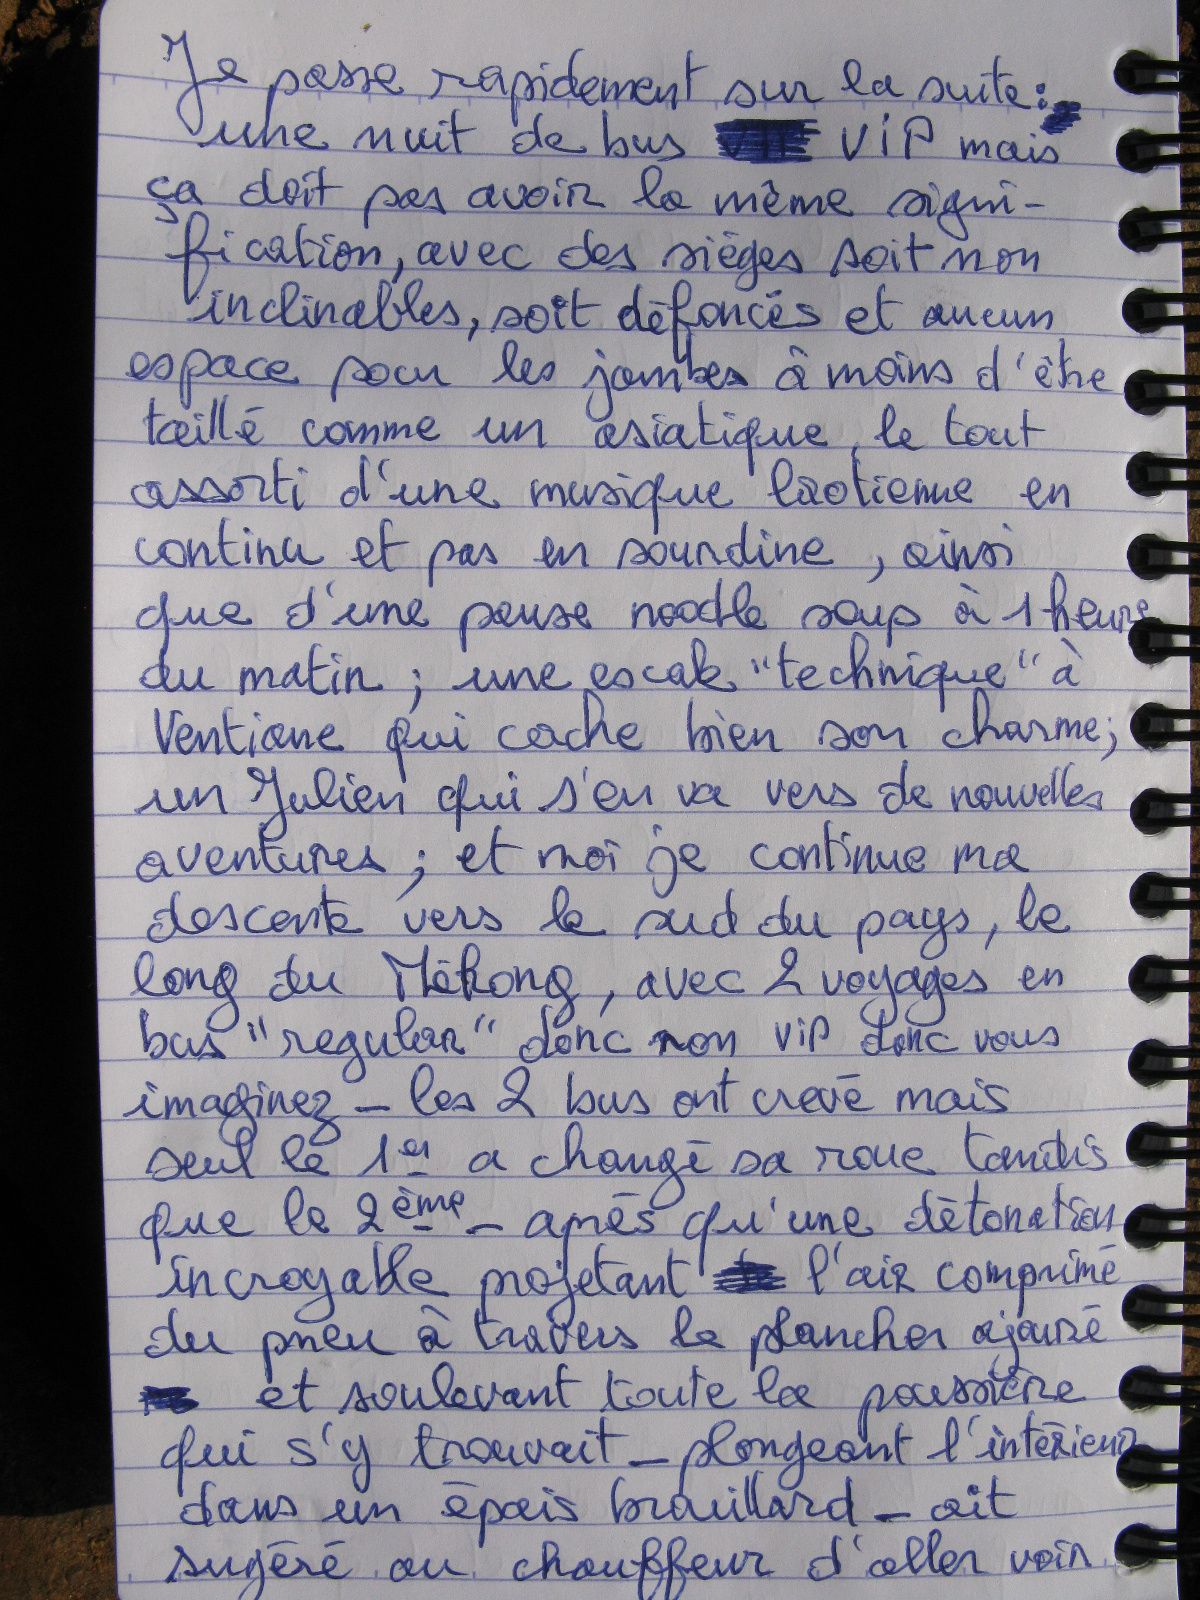 Je passe rapidement sur la suite :
une nuit de bus VIP mais
ça doit pas avoir la même signi-
fication, avec des sièges soit non
inclinables, soit défoncés et aucun
espace pour les jambes à moins d'être
taillé comme un asiatique, le tout
assorti d'une musique laotienne en
continu et pas en sourdine, ainsi
que d'une pause noodle soup à 1 heure
du matin ; une escale "technique" à
Ventiane qui cache bien son charme ;
un Julien qui s'en va vers de nouvelles
aventures ; et moi je continue ma
descente vers le sud du pays, le
long du Mékong, avec 2 voyages en
bus "regular" donc non VIP donc vous
imaginez - les 2 bus ont crevé mais
seul le 1er a changé sa roue tandis
que le 2ème - après qu'une détonation
incroyable projetant l'air comprimé
du pneu à travers le plancher ajouré
et soulevant toute la poussière
qui s'y trouvait - plongeant l'intérieur
dans un épais brouillard - ait
sugéré au chauffeur d'aller voir